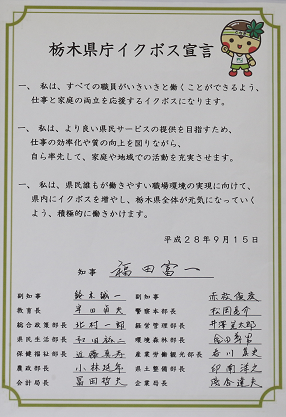 栃木県庁イクボス宣言
一、私は、すべての職員がいきいきと働くことができるよう、
仕事と家庭の両立を応援するイクボスになります。
一、私は、より良い県民サービスの提供を目指すため、
仕事の効率化や質の向上を図りながら、
自ら率先して、家庭や地域での活動を充実させます。
一、私は、県民誰もが働きやすい職場環境の実現に向けて、
県内にイクボスを増やし、栃木県全体が元気になっていく
よう、積極的に働きかけます。
平成28年9月15日
知事 福田富一
副知事 鈴木誠一 副知事
教育長 警察本部長
総合政策部長 北村一郎 経営管理部長
県民生活部長 環境森林部長
保健福祉部長 産業労働観光部長
農政部長 県土整備部長 印南洋之
会計局長 冨田哲夫 企業局長